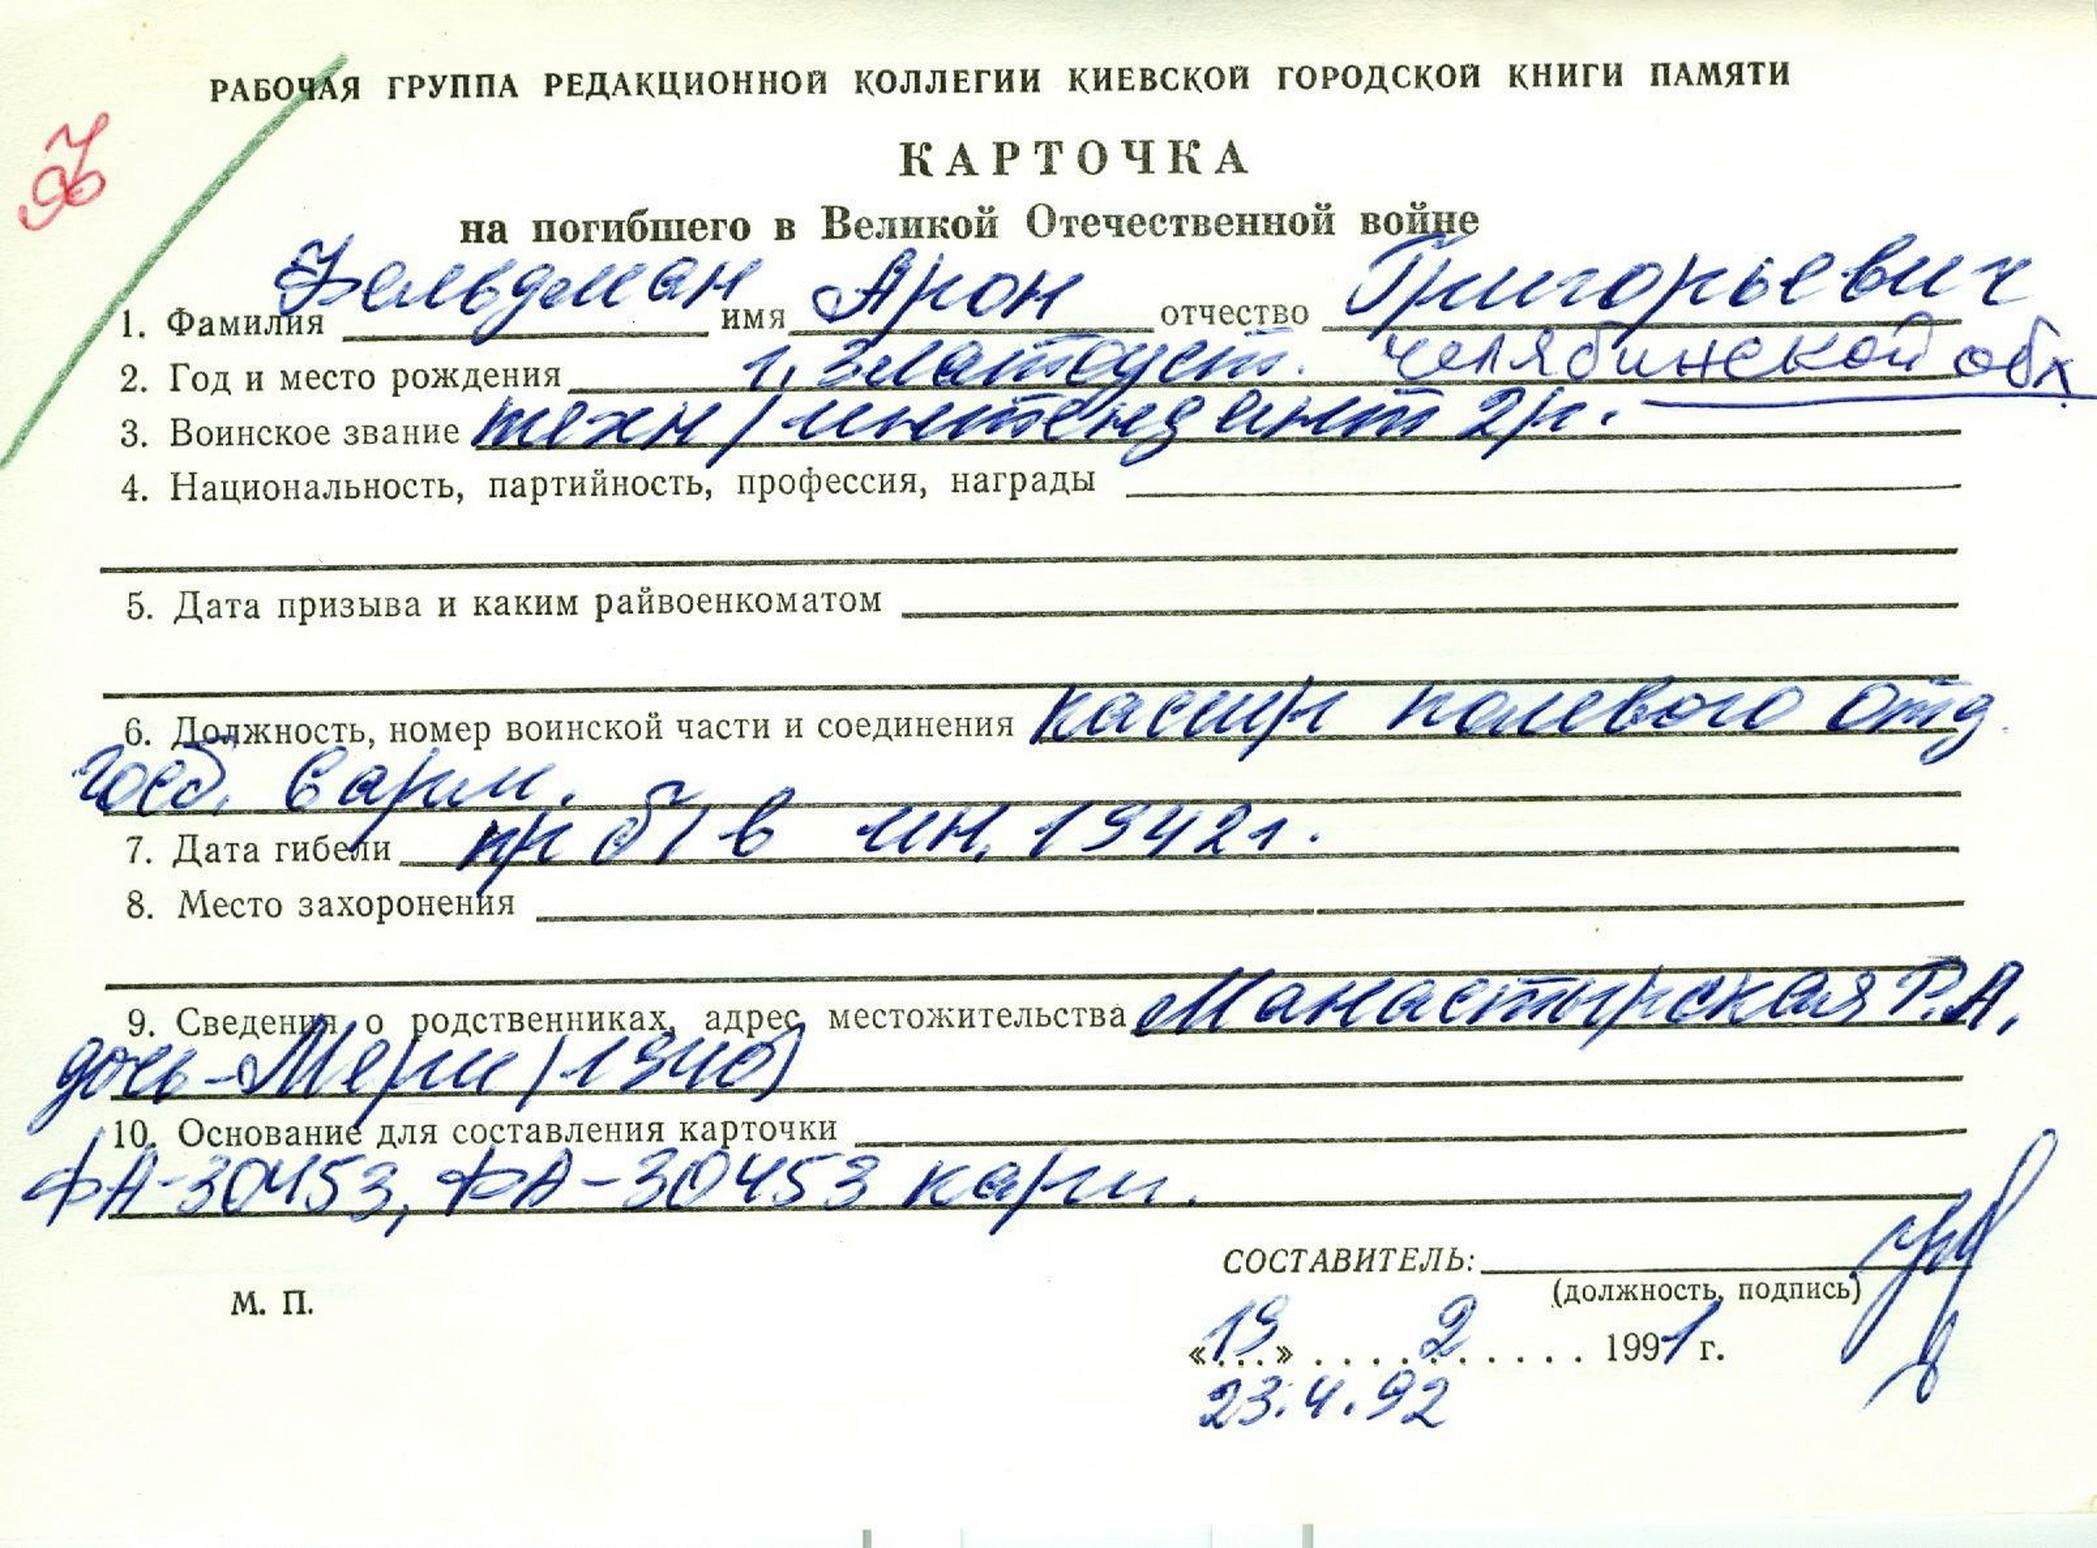 РАБОЧАЯ ГРУППА РЕДАКЦИОННОЙ КОЛЛЕГИИ КИЕВСКОЙ ГОРОДСКОЙ КНИГИ ПАМЯТИ
КАРТОЧКА
на погибшего в Великой Отечественной войне
1. Фамилия Фельдман имя Арон отчество Григорьевич
2. Год и место рождения г. Златоуст. Челябинской обл
3. Воинское звание техн / интендант 2 р.
4. Национальность, партийность, профессия, награды
5. Дата призыва и каким райвоенкоматом
6. Должность, номер воинской части и соединения кассир полевого отд.
госб. 6 арм.
7. Дата гибели пр б/в ин. 1942 г.
8. Место захоронения
9. Сведения о родственниках, адрес местожительства Манастырская Р.А,
дочь - Мери (1940)
10. Основание для составления карточки
ФА-30453, ФА-30453 кари.
СОСТАВИТЕЛЬ:
(должность, подпись)
М. П.
«19» 2 1991 г.
23.4.92